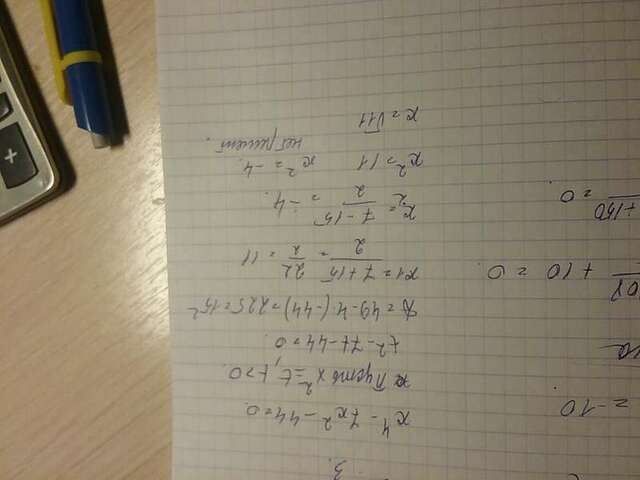 3.
x⁴ - 7x² - 44 = 0.
Пусть x² = t, t>0.
t² - 7t - 44 = 0.
D = 49 - 4·(-44) = 225 = 15²
x1 = 7+15/2 = 22/2 = 11
x2 = 7-15/2 = -4.
x² = 11 x² = -4.
нет решений.
x = √11
= -10
+ 10 = 0.
+150 = 0.
+